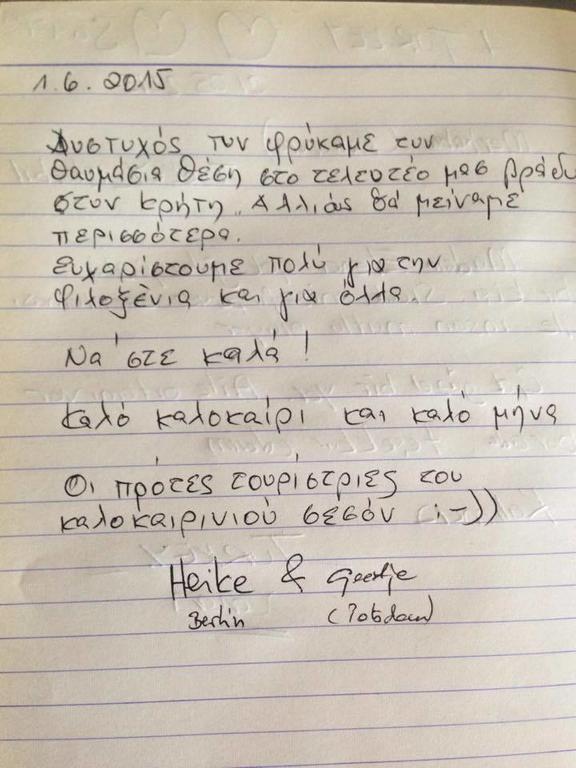 1.6.2015
Δυστυχός των φρύκαμε των
θαυμάσια θέση στο τελευτέο μας βράδυ
στυν κρήτη.. Αλλιάς θά μείναμε
περισσότερα.
Ευχαρίστουμε πολύ για την
Φιλοξένια και για όλλα.
Να 'στε καλά!
Καλό καλοκαίρι και καλό μήνα
Οι πρότες τουρίστριες του
καλοκαιρινιού σεσόν ;-))
Heike & Geertje
Berlin (Potsdam)